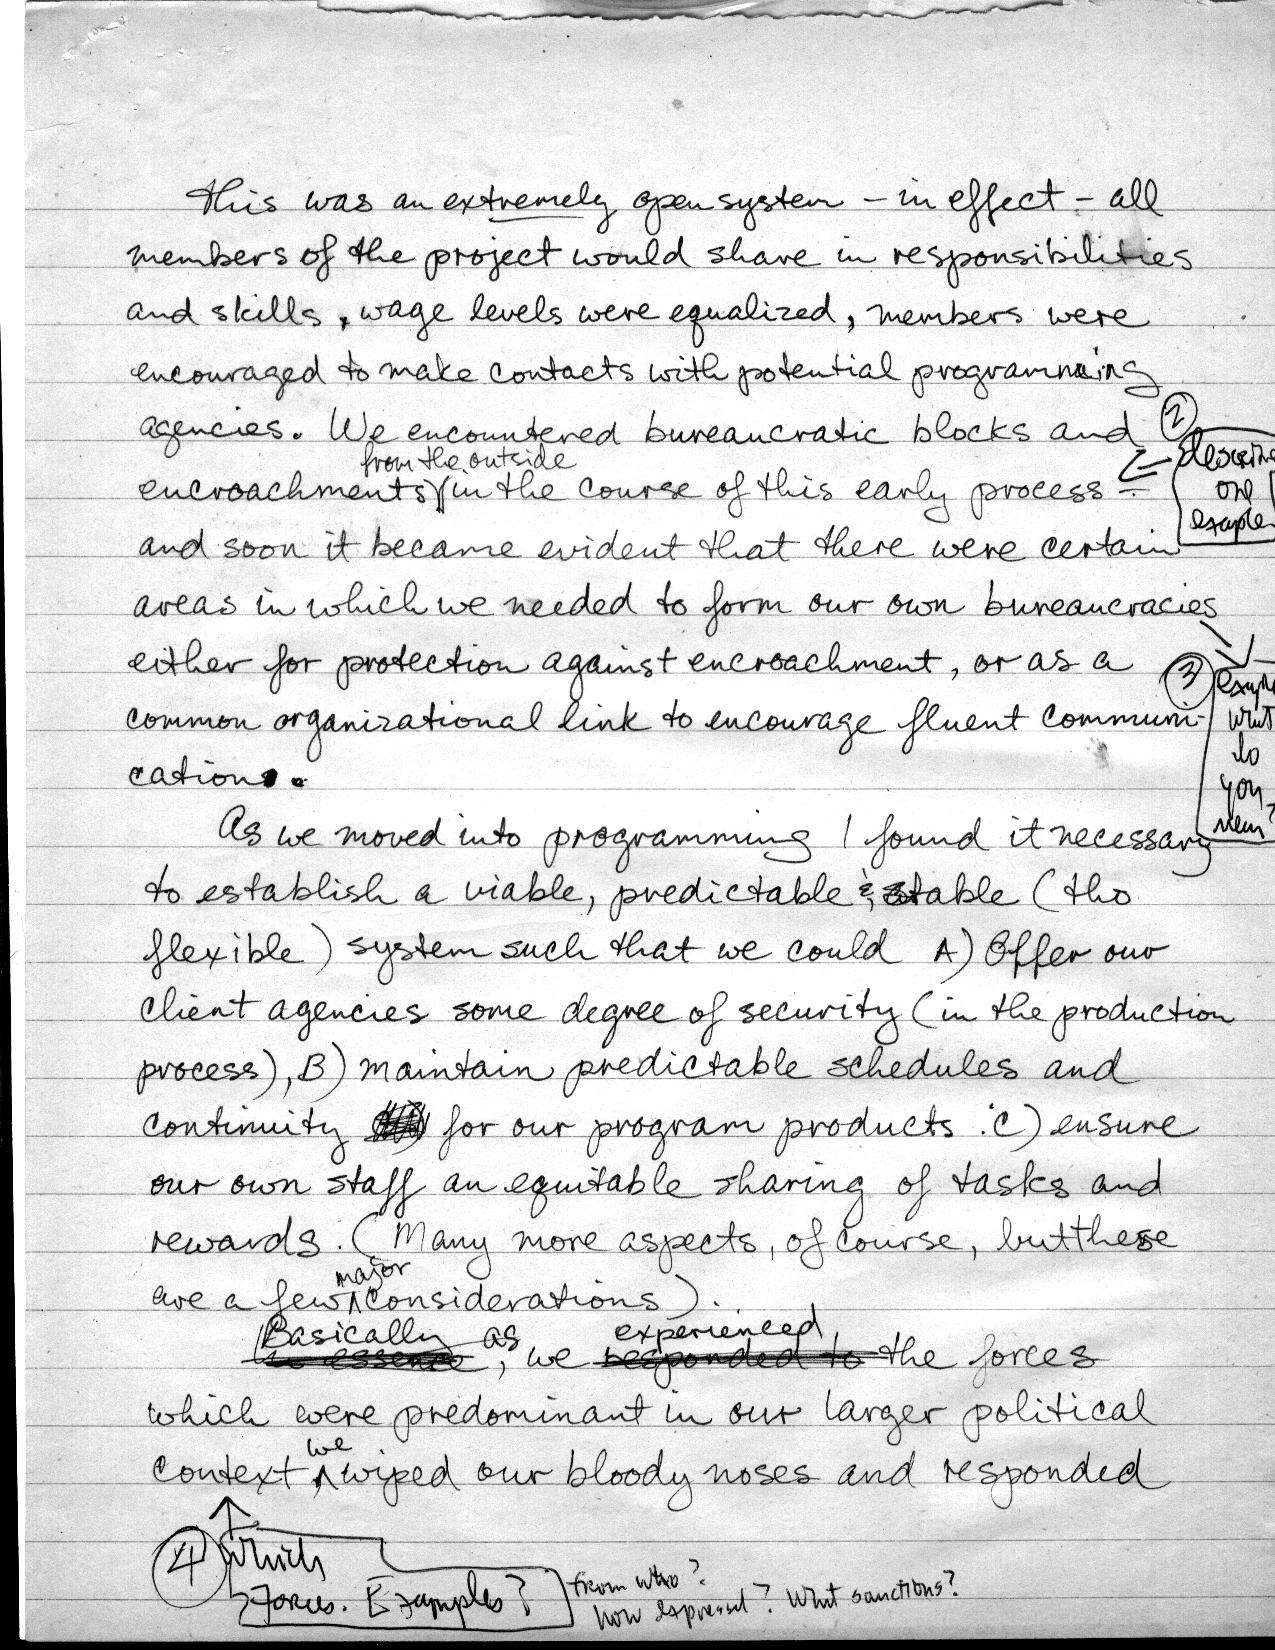 This was an extremely open system – in effect – all
members of the project would share in responsibilities
and skills, wage levels were equalized, members were
encouraged to make contacts with potential programming
agencies. We encountered bureaucratic blocks and
from the outside
encroachments in the course of this early process –
and soon it became evident that there were certain
areas in which we needed to form our own bureaucracies
either for protection against encroachment, or as a
common organizational link to encourage fluent communi-
cation.
2
one
example
3
what
do
you
mean?
As we moved into programming I found it necessary
to establish a viable, predictable & stable (tho
flexible) system such that we could A) Offer our
client agencies some degree of security (in the production
process), B) maintain predictable schedules and
continuity for our program products. C) ensure
our own staff an equitable sharing of tasks and
rewards. (Many more aspects, of course, but these
major
are a few considerations).
Basically as experienced
in essence, we responded to the forces
which were predominant in our larger political
we
context wiped our bloody noses and responded
4 Which
Forces. Examples?
from who?
how expressed? What sanctions?